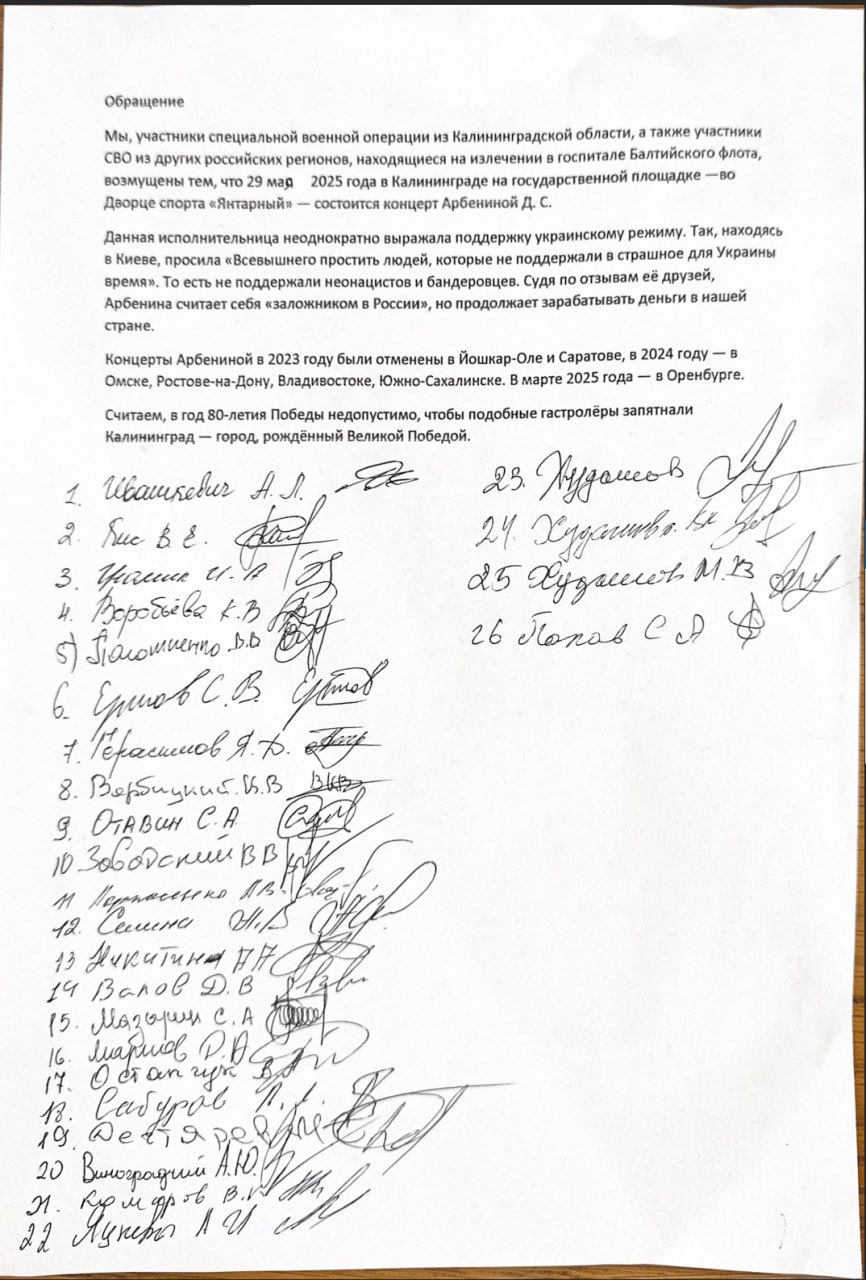 Обращение
Мы, участники специальной военной операции из Калининградской области, а также участники
СВО из других российских регионов, находящиеся на излечении в госпитале Балтийского флота,
возмущены тем, что 29 мая 2025 года в Калининграде на государственной площадке —во
Дворце спорта «Янтарный» — состоится концерт Арбениной Д. С.
Данная исполнительница неоднократно выражала поддержку украинскому режиму. Так, находясь
в Киеве, просила «Всевышнего простить людей, которые не поддержали в страшное для Украины
время». То есть не поддержали неонацистов и бандеровцев. Судя по отзывам её друзей,
Арбенина считает себя «заложником в России», но продолжает зарабатывать деньги в нашей
стране.
Концерты Арбениной в 2023 году были отменены в Йошкар-Оле и Саратове, в 2024 году — в
Омске, Ростове-на-Дону, Владивостоке, Южно-Сахалинске. В марте 2025 года — в Оренбурге.
Считаем, в год 80-летия Победы недопустимо, чтобы подобные гастролёры запятнали
Калининград — город, рождённый Великой Победой.
1. Ивашкевич А. Л.
2. В. Е.
3. И. А
4. Воробьёва К. В
5) В.В
6. Ершов С. В.
7. Герасимов Я. Д.
8. Вербицкий. К.В
9. Отавин С. А
10 Заводский В В
11
12. Селина
13 Никитина А А
14 Валов Д. В
15. Мазорин С. А
16. Д. А
17. Остапчук В А
18. Сабуров
19.
20 Виноградий А.Ю.
21. Комаров В.
22
23. Худашов
24.
25 Худашов М. В
26 Попов С А